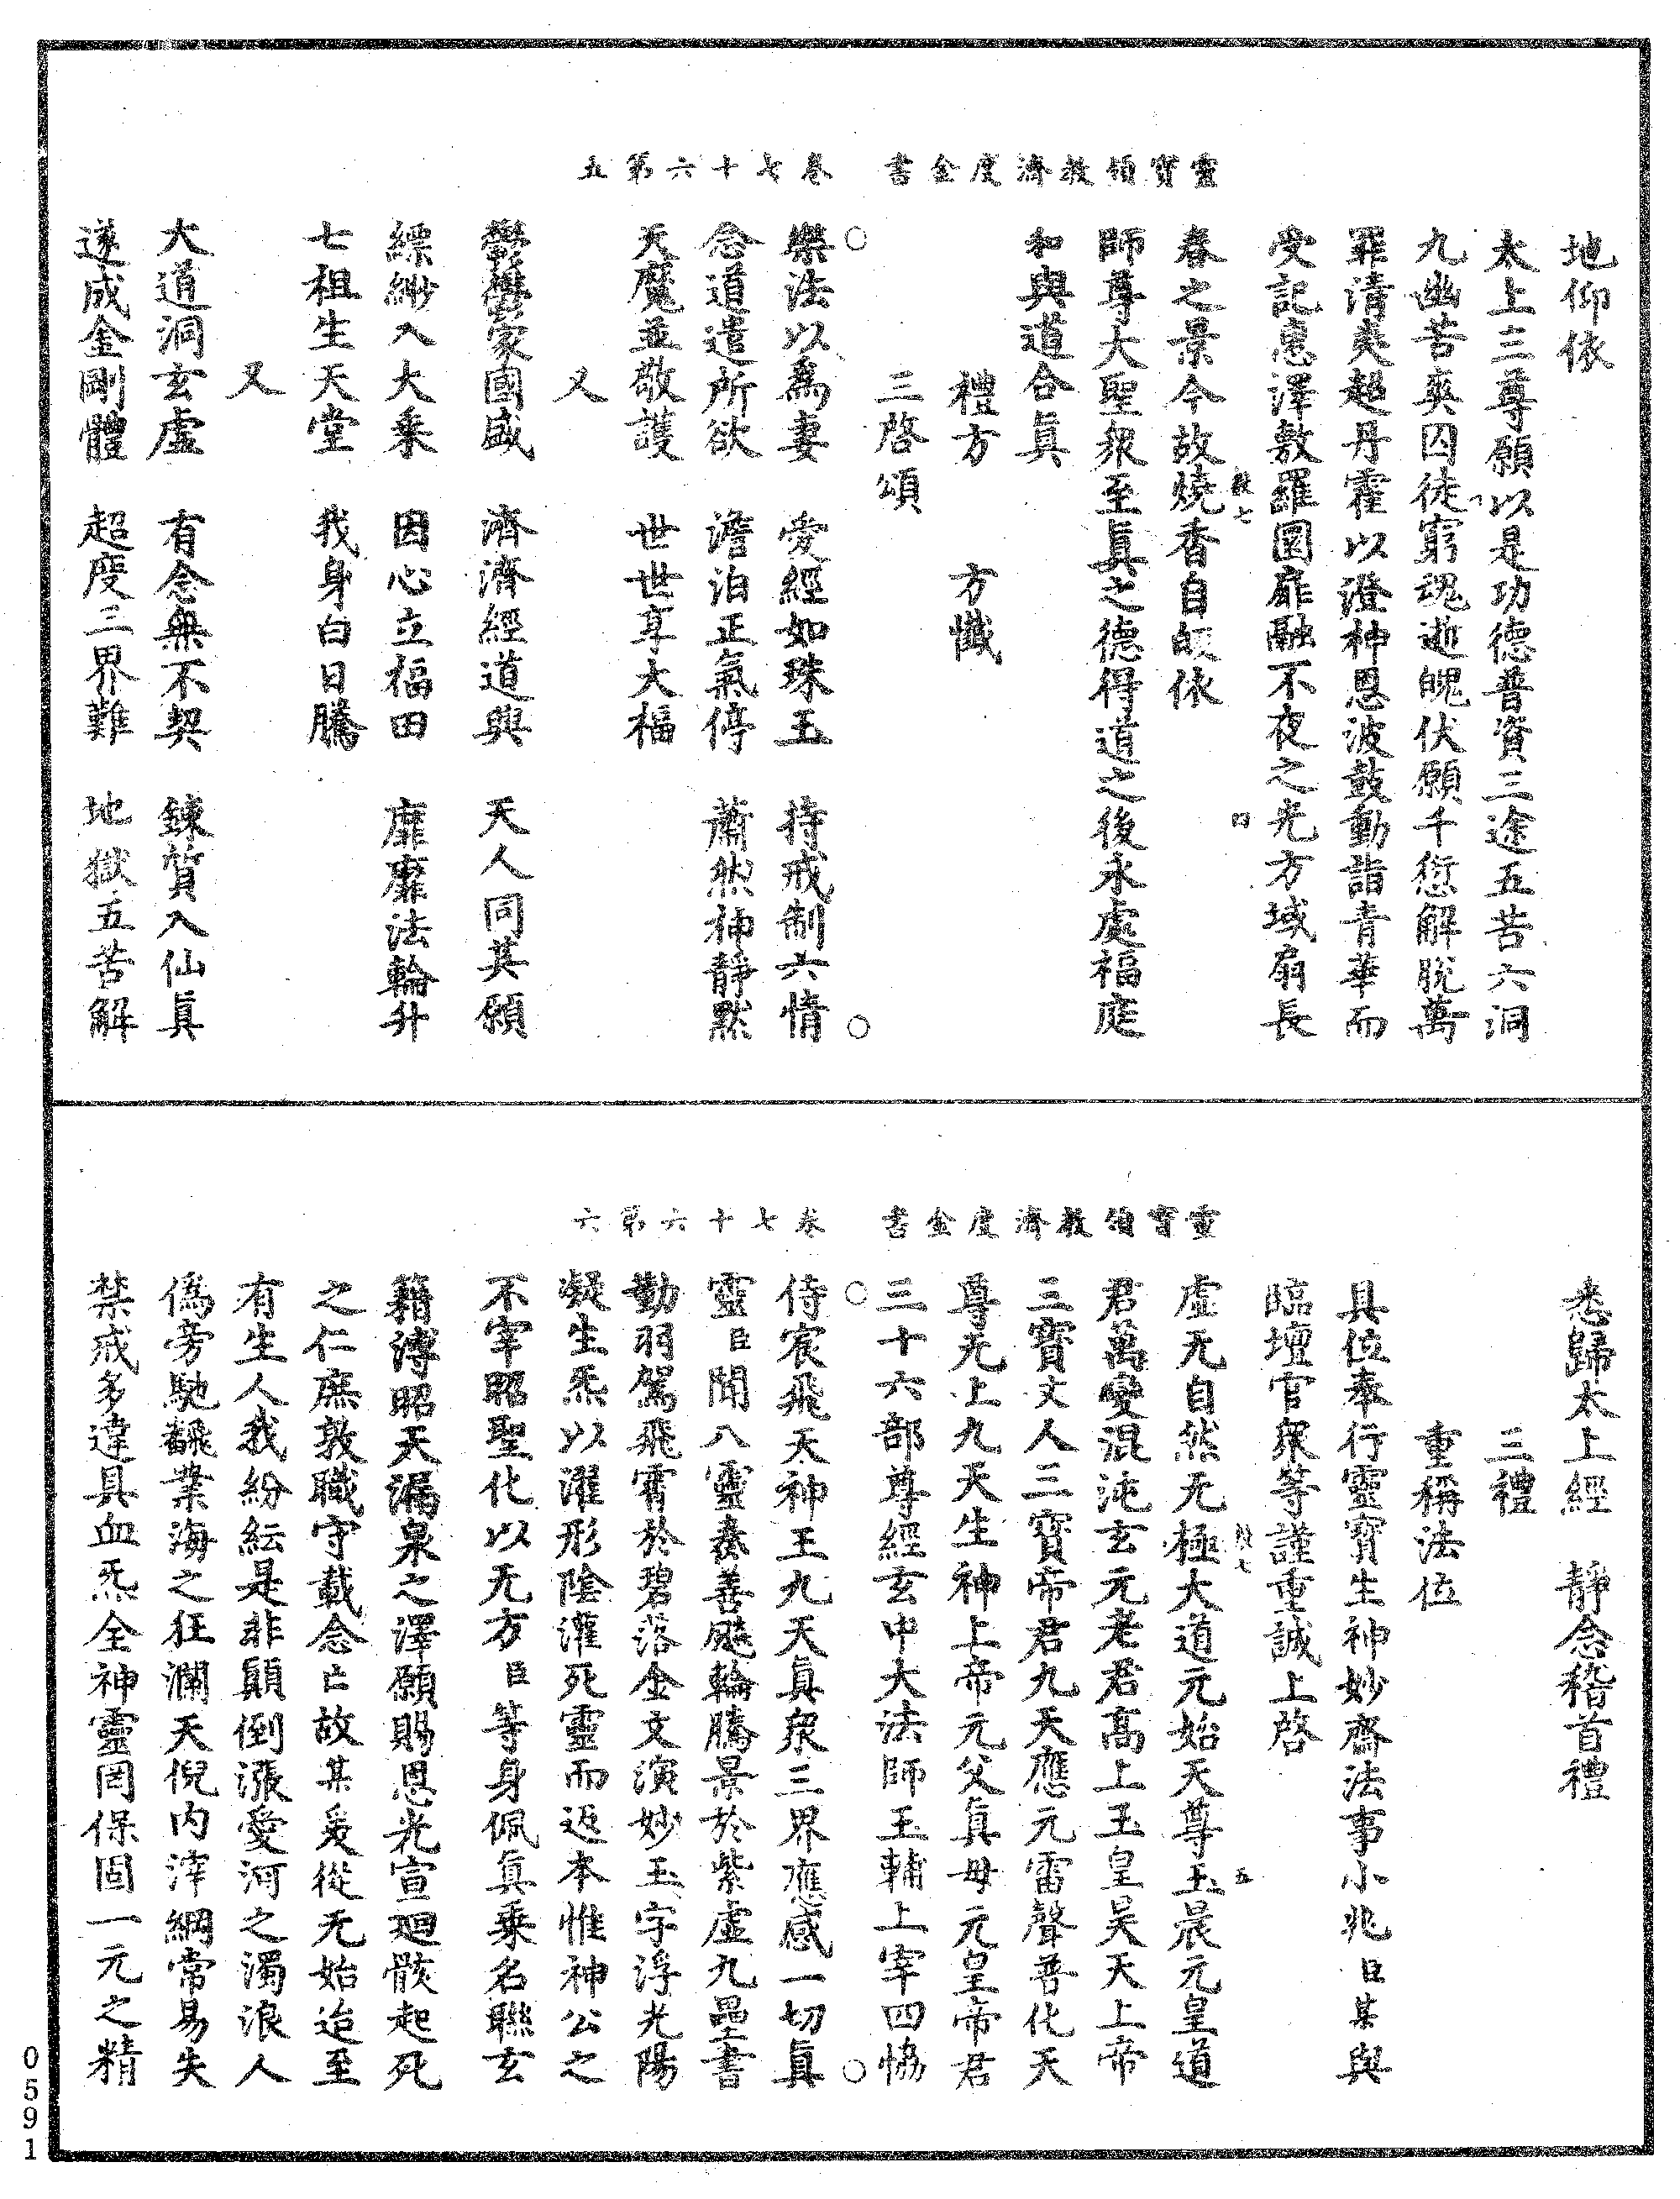 靈寶領教濟度金書　卷七十六第五
地仰依
太上三尊願以是功德普資三途五苦六洞
九幽苦爽囚徒窮魂逝魄伏願千愆解脫萬
罪清夷超丹霍以澄神恩波鼓動詣青華而
受記惠澤敷羅園扉融不夜之光方域扇長
春之景今故燒香自皈依
師尊大聖衆至眞之德得道之後永處福庭
和與道合眞
禮方　方懺
三啓頌
樂法以爲妻　愛經如珠玉　持戒制六情
念道遣所欲　澹泊正氣停　蕭然神靜默
天魔並敬護　世世享大福
又
鬱鬱家國盛　濟濟經道興　天人同其願
縹緲入大乘　因心立福田　靡靡法輪升
七祖生天堂　我身白日騰
又
大道洞玄虛　有念無不契　鍊質入仙眞
遂成金剛體　超度三界難　地獄五苦解
靈寶領教濟度金書　卷七十六第六
悉歸太上經　靜念稽首禮
三禮
重稱法位
具位奉行靈寶生神妙齋法事小兆臣某與
臨壇官衆等謹重誠上啓
虛无自然无極大道元始天尊玉晨元皇道
君萬變混沌玄元老君高上玉皇昊天上帝
三寶文人三寶帝君九天應元雷聲普化天
尊无上九天生神上帝元父眞母元皇帝君
三十六部尊經玄中大法師玉輔上宰四恊
侍宸飛天神王九天眞衆三界應感一切眞
靈臣聞八靈奏善飈輪騰景於紫虛九壘書
勤羽駕飛霄於碧落金文演妙玉字浮光陽
凝生炁以濯形陰灌死靈而返本惟神公之
不宰昭聖化以无方臣等身佩眞乘名聯玄
籍溥昭天漏泉之澤願賜恩光宣廻骸起死
之仁庶敦職守載念亡故某爰從无始迨至
有生人我紛紜是非顚倒漲愛河之濁浪人
僞旁馳飜業海之狂瀾天倪内滓綱常易失
禁戒多違具血炁全神靈罔保固一元之精
0591